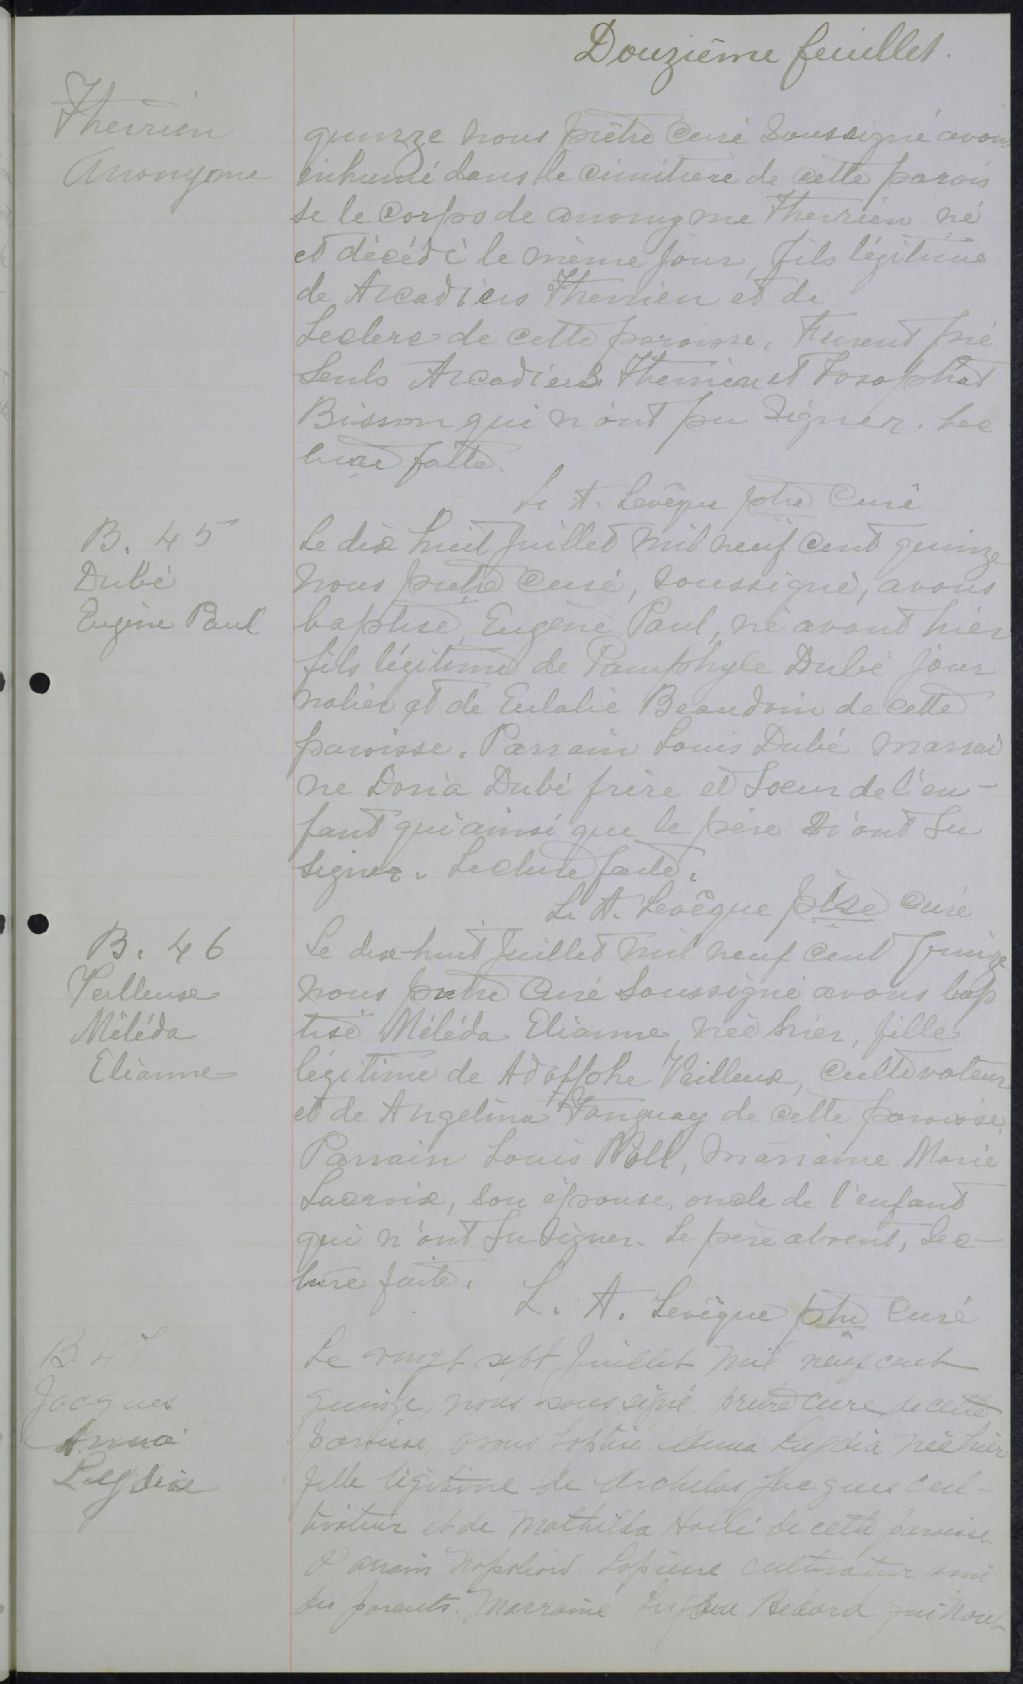 Douzième feuillet.
Therrien
Anonyme
quinze nous prêtre Curé Soussigné avons
inhumé dans le cimitière de cette parois
se le Corps de anonyme Therrien né
et décédé le même jour, fils légitime
de Arcadius Therrien et de
Leclerc de cette paroisse. Furent pré
sents Arcadius Therrien et Josaphat
Bisson qui n'ont pu signer. Lec
ture faite.
L. A. Levêque ptre Curé
B. 45
Dubé
Eugène Paul
Le dix huit Juillet mil neuf cent quinze
nous prêtre Curé, soussigné, avons
baptisé, Eugène Paul, né avant hier
fils légitime de Pamphyle Dubé jour
nalier et de Eulalie Beaudoin de cette
paroisse. Parrain Louis Dubé marrai
ne Doria Dubé frère et Soeur de l'en-
fant qui ainsi que le père n'ont su
signer. Lecture faite.
L. A. Levêque ptre Curé
B. 46
Veilleux
Méléda
Elianne
Le dix-huit Juillet mil neuf cent quinze
nous prêtre Curé Soussigné avons bap
tisé Méléda Elianne, née hier, fille
légitime de Adolphe Veilleux, Cultivateur
et de Angelina Tanguay de cette paroisse.
Parrain Louis Noll, marraine Marie
Lacroix, son épouse, oncle de l'enfant
qui n'ont su signer. Le père absent, Lec-
ture faite.
L. A. Levêque ptre Curé
B. 47
Jacques
Anna
Lydia
Le vingt sept Juillet mil neuf cent
quinze, nous soussigné, prêtre cure de cette
paroisse, avons baptisé Anna Lydia née hier
fille légitime de Archelas Jacques cul-
tivateur et de Mathilda Hallé de cette paroisse
Parrain Napoléon Lapierre cultivateur ami
des parents. Marraine Bedard qui n'ont